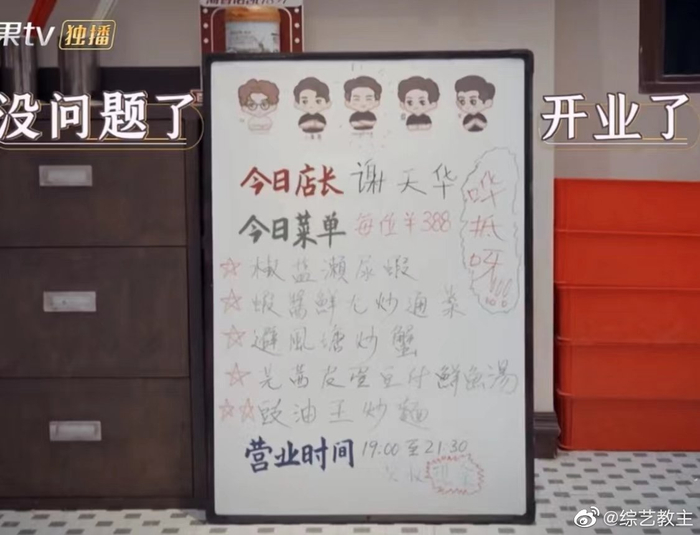 果tv 独播
没问题了
开业了
今日店长 谢天华
今日菜单 每位¥388
哗抵呀!!!
☆椒盐瀨尿蝦
☆蝦醬鮮尤炒通菜
☆避風塘炒蟹
☆芫茜皮蛋豆付鮮魚湯
☆☆豉油王炒麵
营业时间 19:00至21:30
@综艺教主